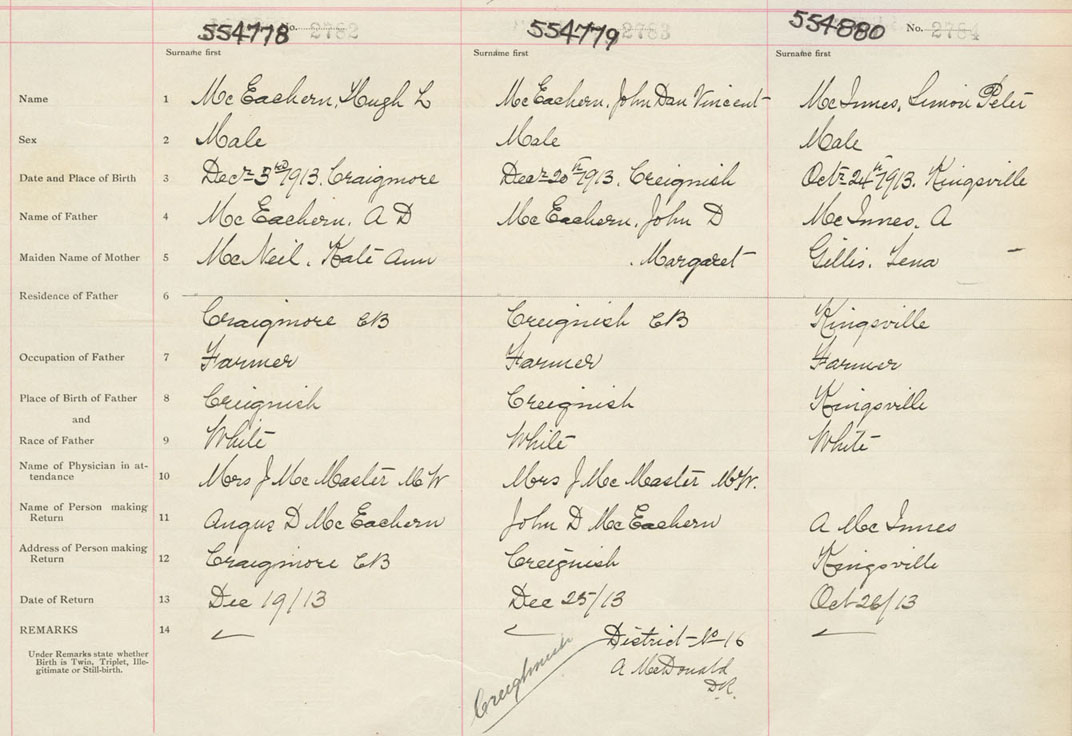 554778 No. 2782 554779 2783 554880 No. 2784
Surname first Surname first Surname first
Name 1 McEachern, Hugh L McEachern, John Dan Vincent McInnes, Simon Peter
Sex 2 Male Male Male
Date and Place of Birth 3 Decr 3rd 1913. Craigmore Decr 20th 1913. Creignish Octr 24th 1913. Kingsville
Name of Father 4 McEachern, A D McEachern, John D McInnes, A
Maiden Name of Mother 5 McNeil, Kate Ann , Margaret Gillis, Lena –
Residence of Father 6
Craigmore CB Creignish CB Kingsville
Occupation of Father 7 Farmer Farmer Farmer
Place of Birth of Father 8 Creignish Creignish Kingsville
and
Race of Father 9 White White White
Name of Physician in at-
tendance 10 Mrs J McMaster MW Mrs J McMaster MW.
Name of Person making
Return 11 Angus D McEachern John D McEachern A McInnes
Address of Person making
Return 12 Craigmore CB Creignish Kingsville
Date of Return 13 Dec 19/13 Dec 25/13 Oct 26/13
REMARKS 14 District No 16
Under Remarks state whether
Birth is Twin, Triplet, Ille-
gitimate or Still-birth.
A McDonald
D.R.
Creighnish